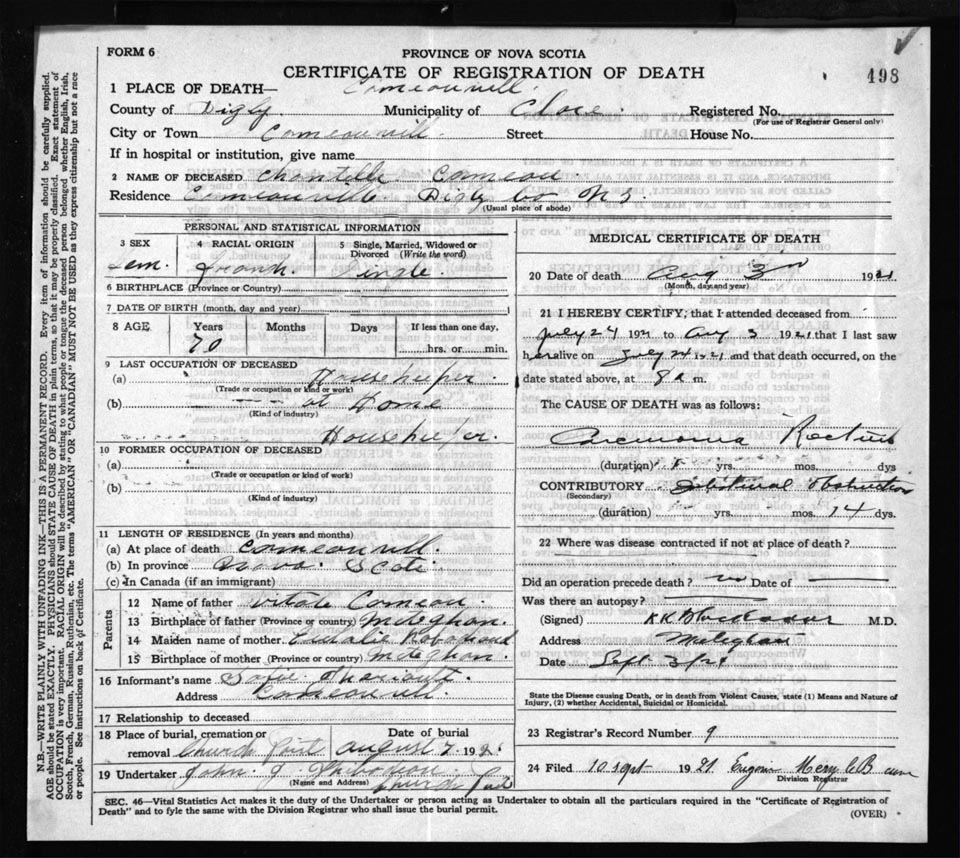 FORM 6
PROVINCE OF NOVA SCOTIA
CERTIFICATE OF REGISTRATION OF DEATH
498
1 PLACE OF DEATH— Comeauvill.
County of Digby. Municipality of Clare. Registered No.
(For use of Registrar General only)
City or Town Comeauvill. Street House No.
If in hospital or institution, give name
2 NAME OF DECEASED Comeau
Residence Comeauville Digby Co N S
(Usual place of abode)
PERSONAL AND STATISTICAL INFORMATION
3 SEX 4 RACIAL ORIGIN 5 Single, Married, Widowed or Divorced (Write the word)
Fem. Single.
6 BIRTHPLACE (Province or Country)
7 DATE OF BIRTH (month, day and year)
8 AGE Years Months Days If less than one day,
70 hrs. or min.
9 LAST OCCUPATION OF DECEASED
(a) Housekeeper.
(Trade or occupation or kind or work)
(b) at Home
(Kind of industry)
Housekeeper.
10 FORMER OCCUPATION OF DECEASED
(a)
(Trade or occupation or kind of work)
(b)
(Kind of industry)
11 LENGTH OF RESIDENCE (In years and months)
(a) At place of death Comeauvill.
(b) In province Nova Scoti
(c) In Canada (if an immigrant)
Parents
12 Name of father Comeau.
13 Birthplace of father (Province or country) Meteghan.
14 Maiden name of mother
15 Birthplace of mother (Province or country) Meteghan.
16 Informant's name
Address Comeauvill
17 Relationship to deceased
18 Place of burial, cremation or Date of burial
removal Church Point august 7 19
19 Undertaker John J.
(Name and Address) Church
MEDICAL CERTIFICATE OF DEATH
20 Date of death Aug 3 1921
(Month, day and year)
21 I HEREBY CERTIFY, that I attended deceased from
July 24 1921 to Aug 3 1921 that I last saw
her alive on July 24 1921 and that death occurred, on the
date stated above, at 8 a m.
The CAUSE OF DEATH was as follows:
Carcinoma Rectum
(duration) yrs. mos. dys
CONTRIBUTORY Intestinal Obstruction
(Secondary)
(duration) yrs. mos. 14 dys.
22 Where was disease contracted if not at place of death?
Did an operation precede death? no Date of
Was there an autopsy?
(Signed) M.D.
Address Meteghan
Date Sept 3/21
State the Disease causing Death, or in death from Violent Causes, state (1) Means and Nature of
Injury, (2) whether Accidental, Suicidal or Homicidal.
23 Registrar's Record Number 9
24 Filed 10 sept 1921
Division Registrar
SEC. 46—Vital Statistics Act makes it the duty of the Undertaker or person acting as Undertaker to obtain all the particulars required in the "Certificate of Registration of
Death" and to fyle the same with the Division Registrar who shall issue the burial permit.
(OVER)
N.B.—WRITE PLAINLY WITH UNFADING INK—THIS IS A PERMANENT RECORD. Every item of information should be carefully supplied.
AGE should be stated EXACTLY. PHYSICIANS should STATE CAUSE OF DEATH in plain terms, so that it may be properly classified. Exact statement of
OCCUPATION is very important. RACIAL ORIGIN will be described by stating to what people or tongue the deceased person belonged whether English, Irish,
Scotch, French, German, Russian, Ruthenian, etc. The terms "AMERICAN" OR "CANADIAN" MUST NOT BE USED as they express citizenship but not a race
or people. See instructions on back of Certificate.